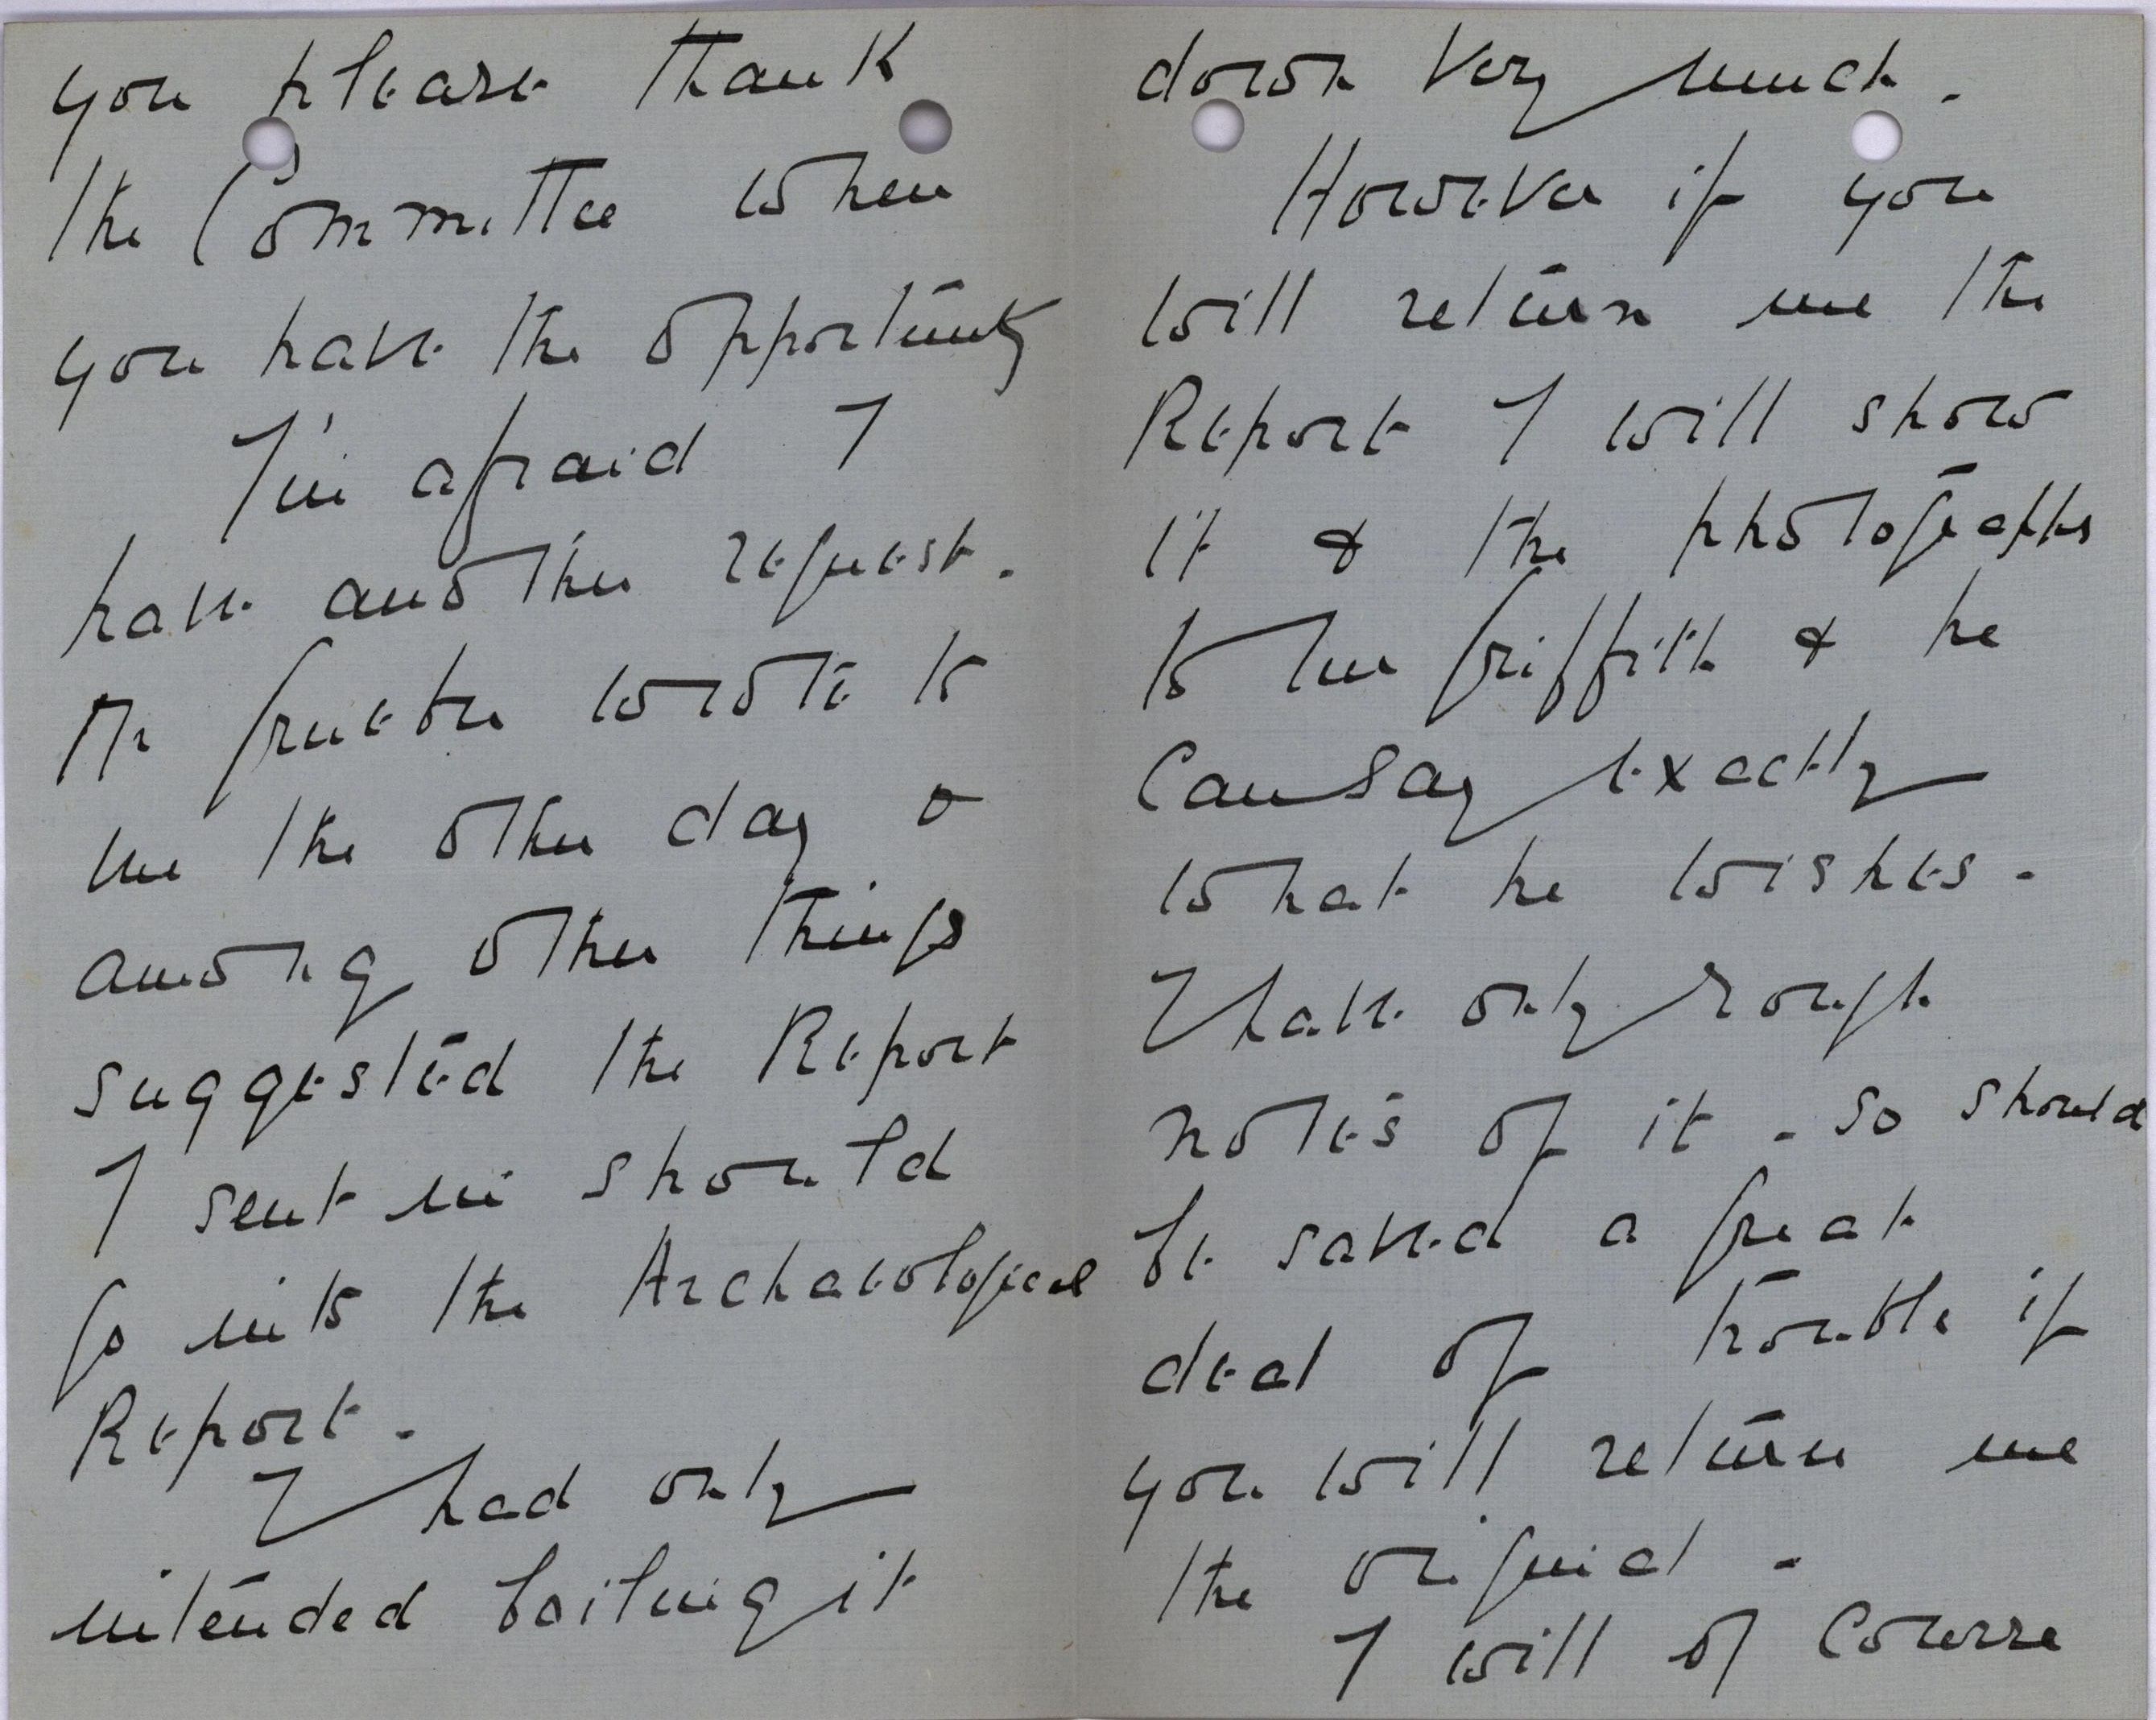 you please thank
the Committee when
you have the opportunity
I'm afraid I
have another request.
Mr Grueber wrote to
me the other day &
among other things
suggested the Report
I sent in should
go into the Archaeological
Report.
I had only
intended boiling it
down very much.
However if you
will return me the
Report I will show
it & the photographs
to Mr Griffith & he
can say exactly
what he wishes.
I have only rough
notes of it - so should
be saved a great
deal of trouble if
you will return me
the original -
I will of course